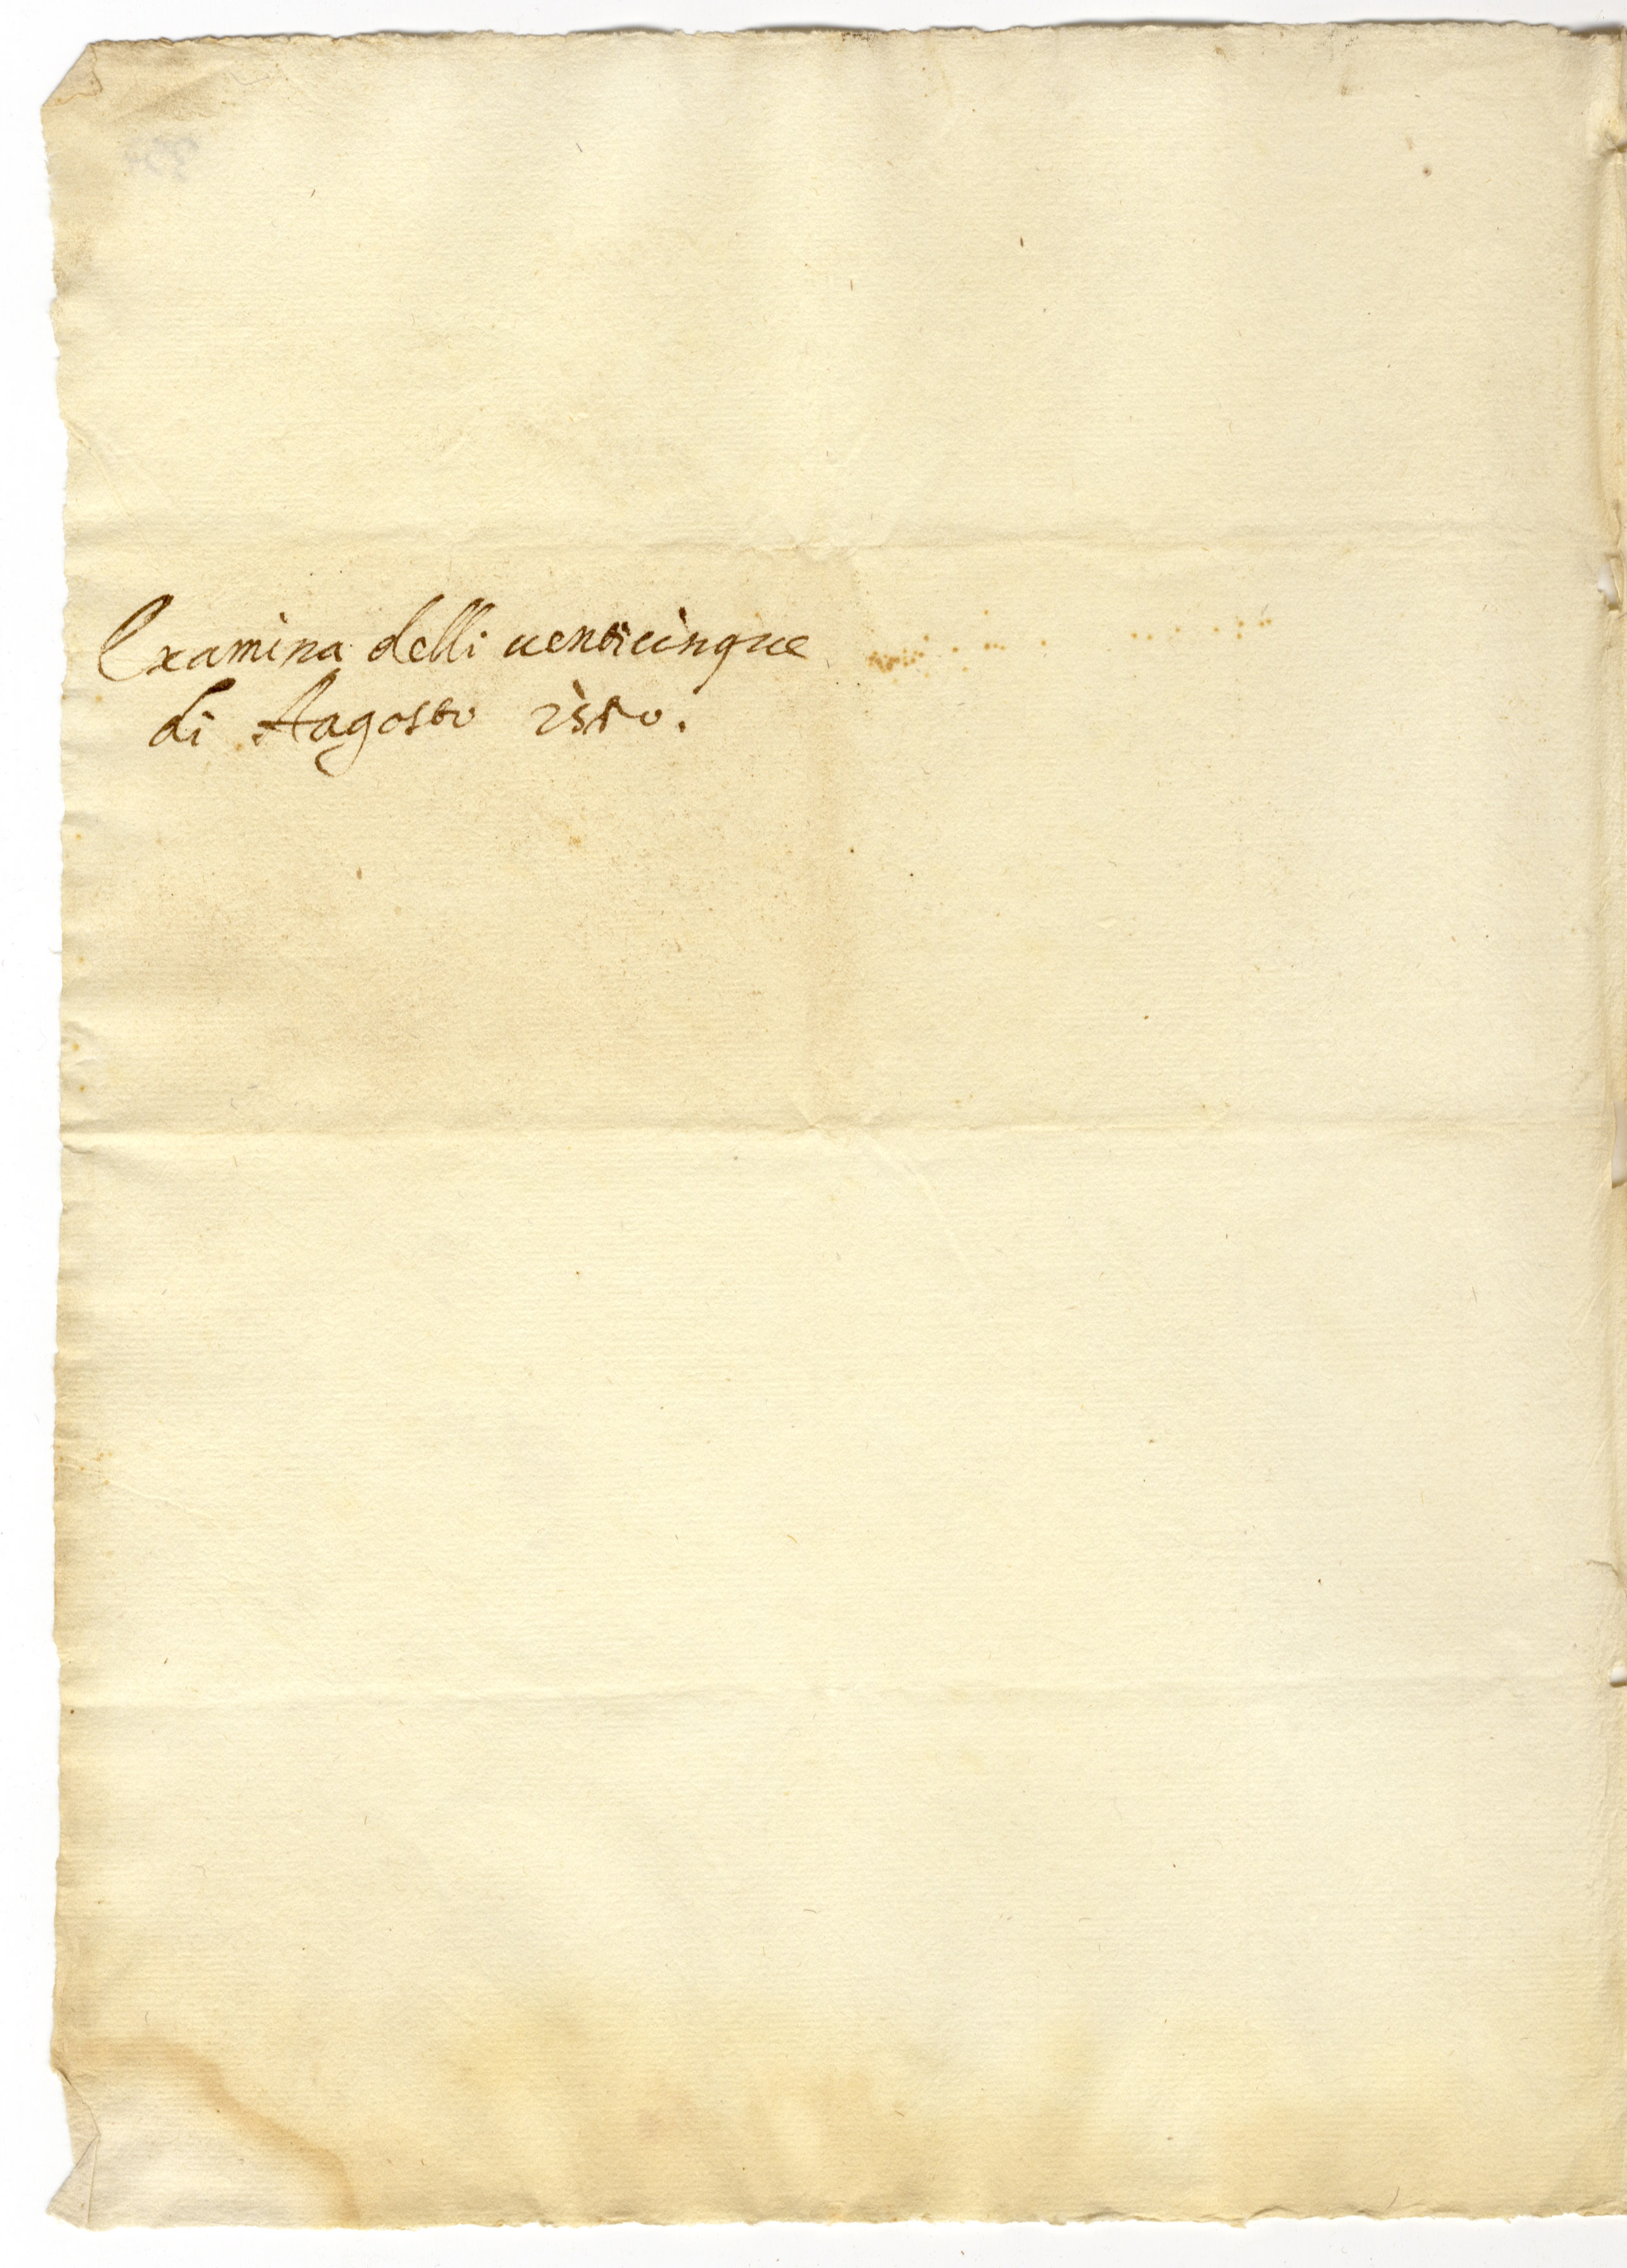 Examina delli uenticinque
di Aagosto